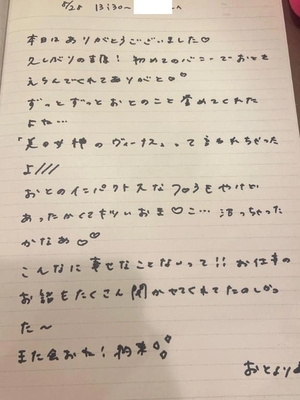 5/25 13:30〜
本日はありがとうございました♡
久しぶりの吉原!初めてのバニーでおとを
えらんでくれてありがと♡♡
ずっとずっとおとのこと誉めてくれた
よね…
「美の女神のヴィーナス」って言われちゃった
よ///
おとのインパクト大なフロうもやけど
あったかくてキツいおま♡こ…沼っちゃった
かなぁ♡♡
こんなに幸せなことないって!!お仕事の
お話もたくさん聞かせてくれてたのしかっ
た〜
また会おね!約束
おとより♪